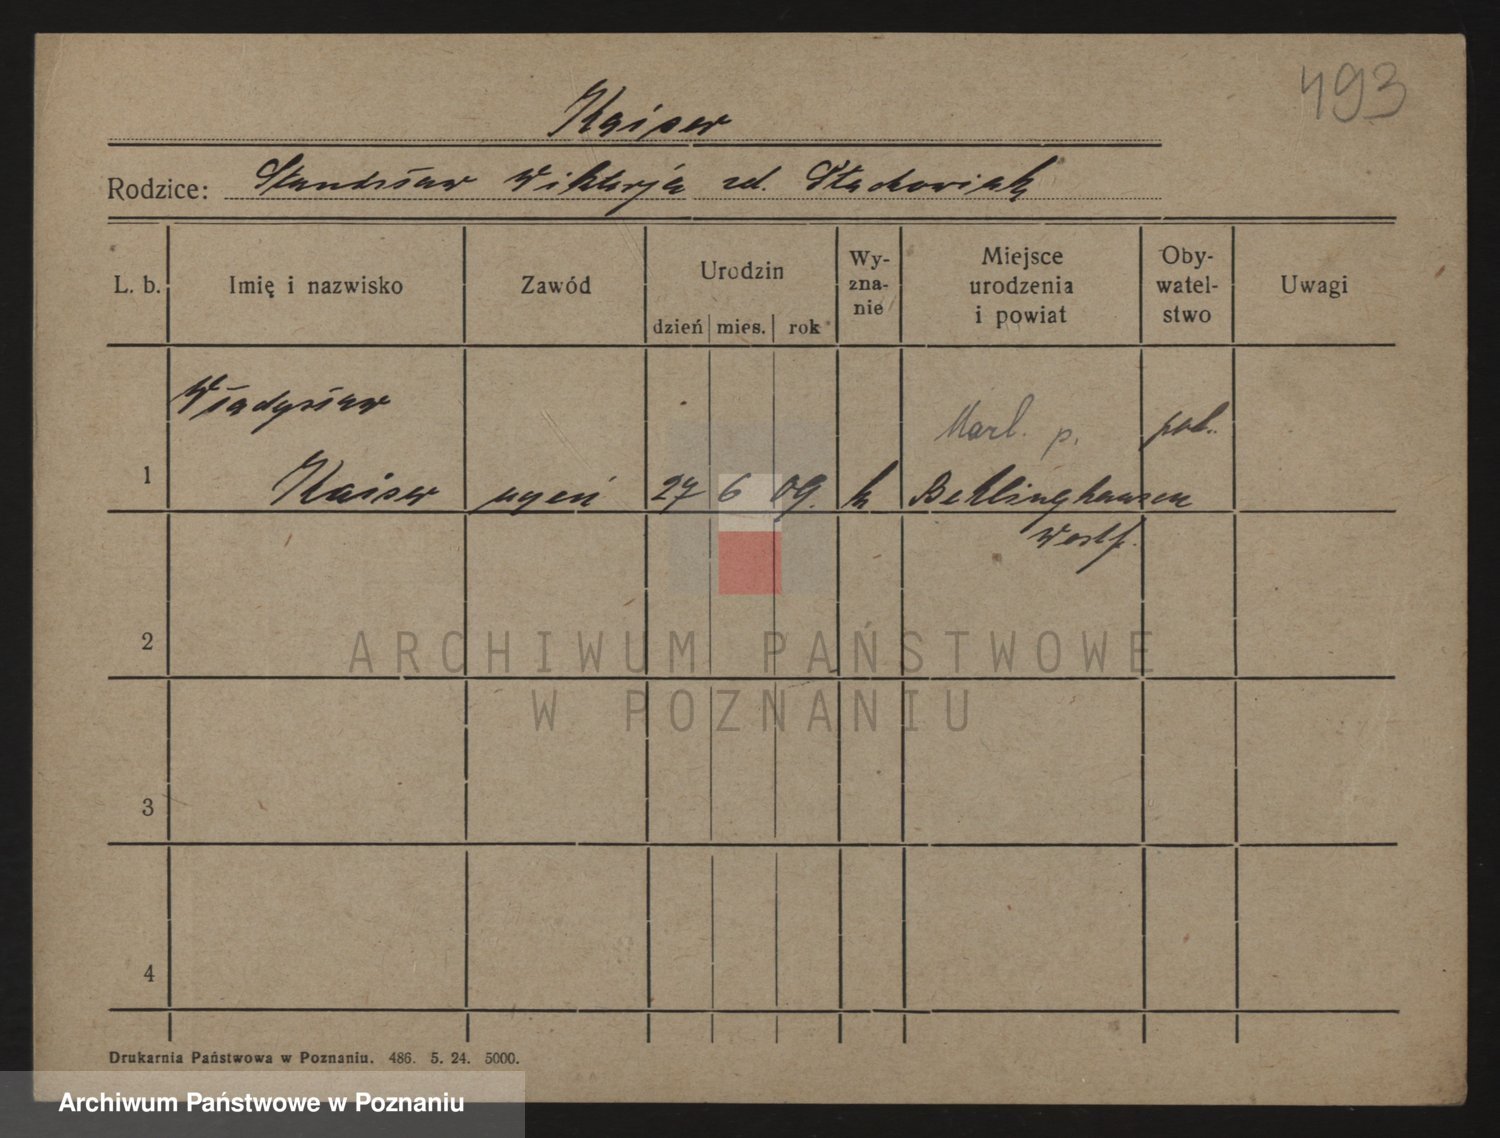 493
Kaiser
Rodzice: Stanisław Wiktorja zd. Stachowiak
L. b.
Imię i nazwisko
Zawód
Urodzin
dzień mies. rok
Wy-
zna-
nie
Miejsce
urodzenia
i powiat
Oby-
watel-
stwo
Uwagi
1
Władysław
Kaiser
uczeń
27 6 09.
k
Marl. p.
pol.
Westf.
2
3
4
ARCHIWUM PAŃSTWOWE
W POZNANIU
Drukarnia Państwowa w Poznaniu. 486. 5. 24. 5000.
Archiwum Państwowe w Poznaniu